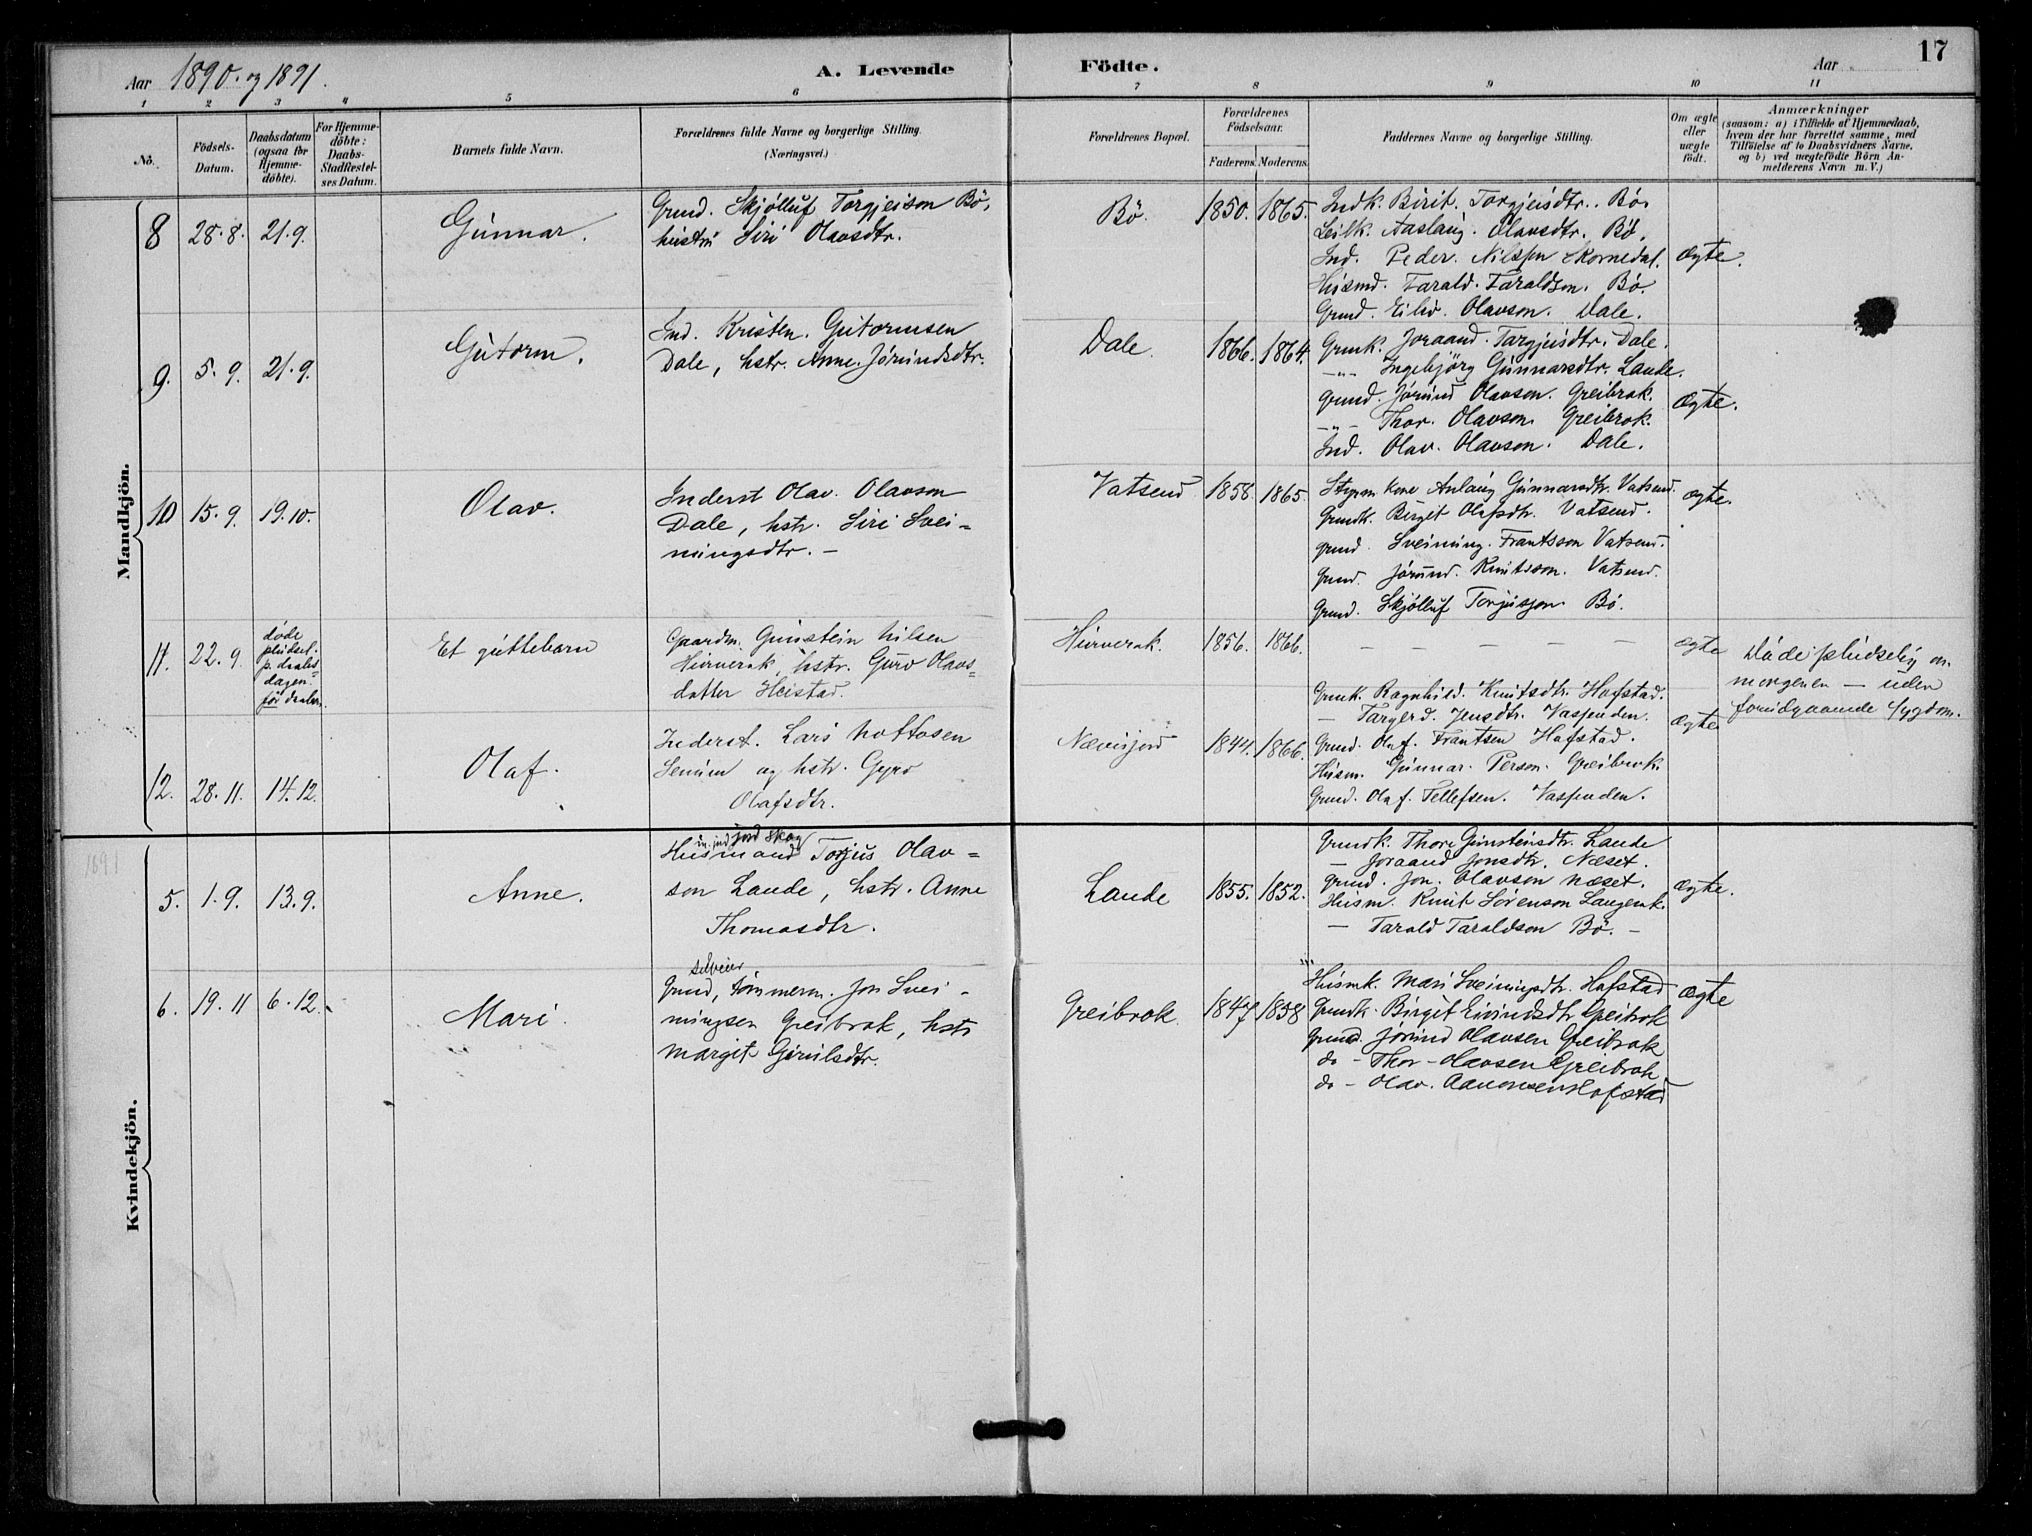 17
Aar 1890. og 1891.
A. Levende Födte.
Aar
1 2 3 4 5 6 7 8 9 10 11
No.
Födsels-Datum.
Daabsdatum (ogsaa for Hjemme-döbte).
For Hjemme-döbte: Daabs-Stadfæstel-ses Datum.
Barnets fulde Navn.
Forældrenes fulde Navne og borgerlige Stilling.
(Næringsvei.)
Forældrenes Bopæl.
Forældrenes Födselsaar.
Faderens. Moderens.
Faddernes Navne og borgerlige Stilling.
Om ægte eller uægte födt.
Anmærkninger
(saasom: a) i Tilfælde af Hjemmedaab,
hvem der har forrettet samme, med
Tilföielse af to Daabsvidners Navne,
og b) ved uægtefödte Börn An-
melderens Navn m. V.)
Mandkjön.
8 28.8. 21.9. Gunnar.
Grund. Skjølluf Torgjeison Bö,
hustru Siri Olavsdtr.
Bö. 1850. 1865.
Indk. Birit. Torgjeisdtr. Bö.
Leilk. Aaslaug. Olavsdtr. Bö.
Ind. Peder. Nilssen Skornedal.
Husmd. Tarald. Taraldson. Bö.
Grund. Eiliv. Olavson. Dale.
ægte.
9. 5.9. 21.9. Gutorm.
Ind. Kristen. Gutormsen
Dale, hstr. Anne Jørundsdtr.
Dale. 1866. 1864.
Grunk. Joraand. Targjeisdtr. Dale.
-"- Ingebjörg Gunnarsdtr. Laude.
Grund. Jørund Olavson. Greibrok.
-"- Thor. Olavson. Greibrok.
Ind. Olav. Olavson. Dale.
ægte.
10 15.9. 19.10. Olav.
Inderst Olav. Olavson
Dale, hstr. Siri Svei-
nungsdtr. -
Vatsend 1858. 1865.
Kone Anlaug Gunnarsdtr. Vatsend.
Grundk. Birgit Olafsdtr. Vatsend.
Grund. Sveinung. Frantsson Vatsend.
Grund. Jørund. Knutsson. Vatsend.
Grund. Skjølluf Torjusson. Bö.
ægte.
11. 22.9.
døde
pludsel.
p. daabs
dagen.
før daaben.
Et guttebarn
Gaardm. Gunstein Nilsen
Hurverak, hstr. Guro Olavs-
datter Heistad.
Hurverak. 1856. 1866.
— — — — —
ægte
Døde pludselig om
morgenen — uden
foregaaende Sygdom.
12. 28.11. 14.12. Olaf.
Inderst. Lars Nottosen
og hstr. Gyro
Olafsdtr.
Nævisjord 1844. 1866.
Grunk. Ragnhild. Knutsdtr. Hofstad.
— Targerd. Jensdtr. Vasjenden.
Grund. Olaf. Frantsen Hofstad.
Husm. Gunnar. Person. Greibrok.
Grund. Olaf. Tellefsen. Vasjenden.
ægte
1891
Kvindekjön.
5. 1.9. 13.9. Anne.
jord Skog
Husmand Torjus Olav-
son Laude, hstr. Anne
Thomasdtr.
Laude 1855. 1852.
Grundk. Thore Gunsteinsdtr. Laude
— Joraand Jonsdtr. Næset.
Grund. Jon. Olavson Næset.
Husm. Knut Sørenson Langenk.
— Tarald Taraldson Bö. —
ægte.
6. 19.11 6.12. Mari.
selveier
Grund, tömmerm. Jon Svei-
nungsen Greibrok, hstr
Margit Gjeruldsdtr.
Greibrok. 1847 1858
Husmk. Mari Sveinungsdtr. Hofstad
Grundk. Birgit Eivindsdtr Greibrok
Grund. Jørund Olavsen Greibrok
do - Thor - Olavsen Greibrok
do - Olav. Aanonsen Hofstad
ægte